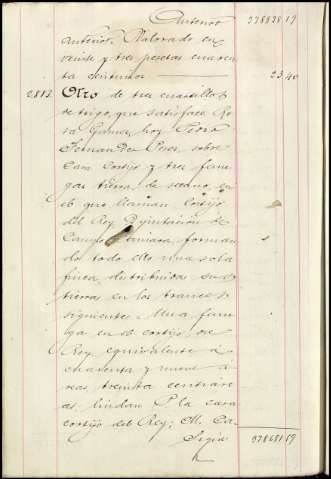 Anterior 378638.19
anterior. Valorado en
veinte y tres pesetas cuaren
ta centimos 23,40
2.813. Otro de tres cuartillos
de trigo, que satisface Ro
sa Gomez, hoy
Fernandez Perez, sobre
Casa Cortijo y tres fane
gas tierra de secano, en
el que llaman Cortijo
del Rey Diputacion de
Campo forman
do todo ello una sola
finca, distribuida su
tierra en los trances
siguientes. Una fane
ga en el cortijo del
Rey, equivalente á
cuarenta y nueve á
reas, treinta centiare
as, lindan P. la casa
cortijo del Rey; M. Ca
Sigue 378661.59